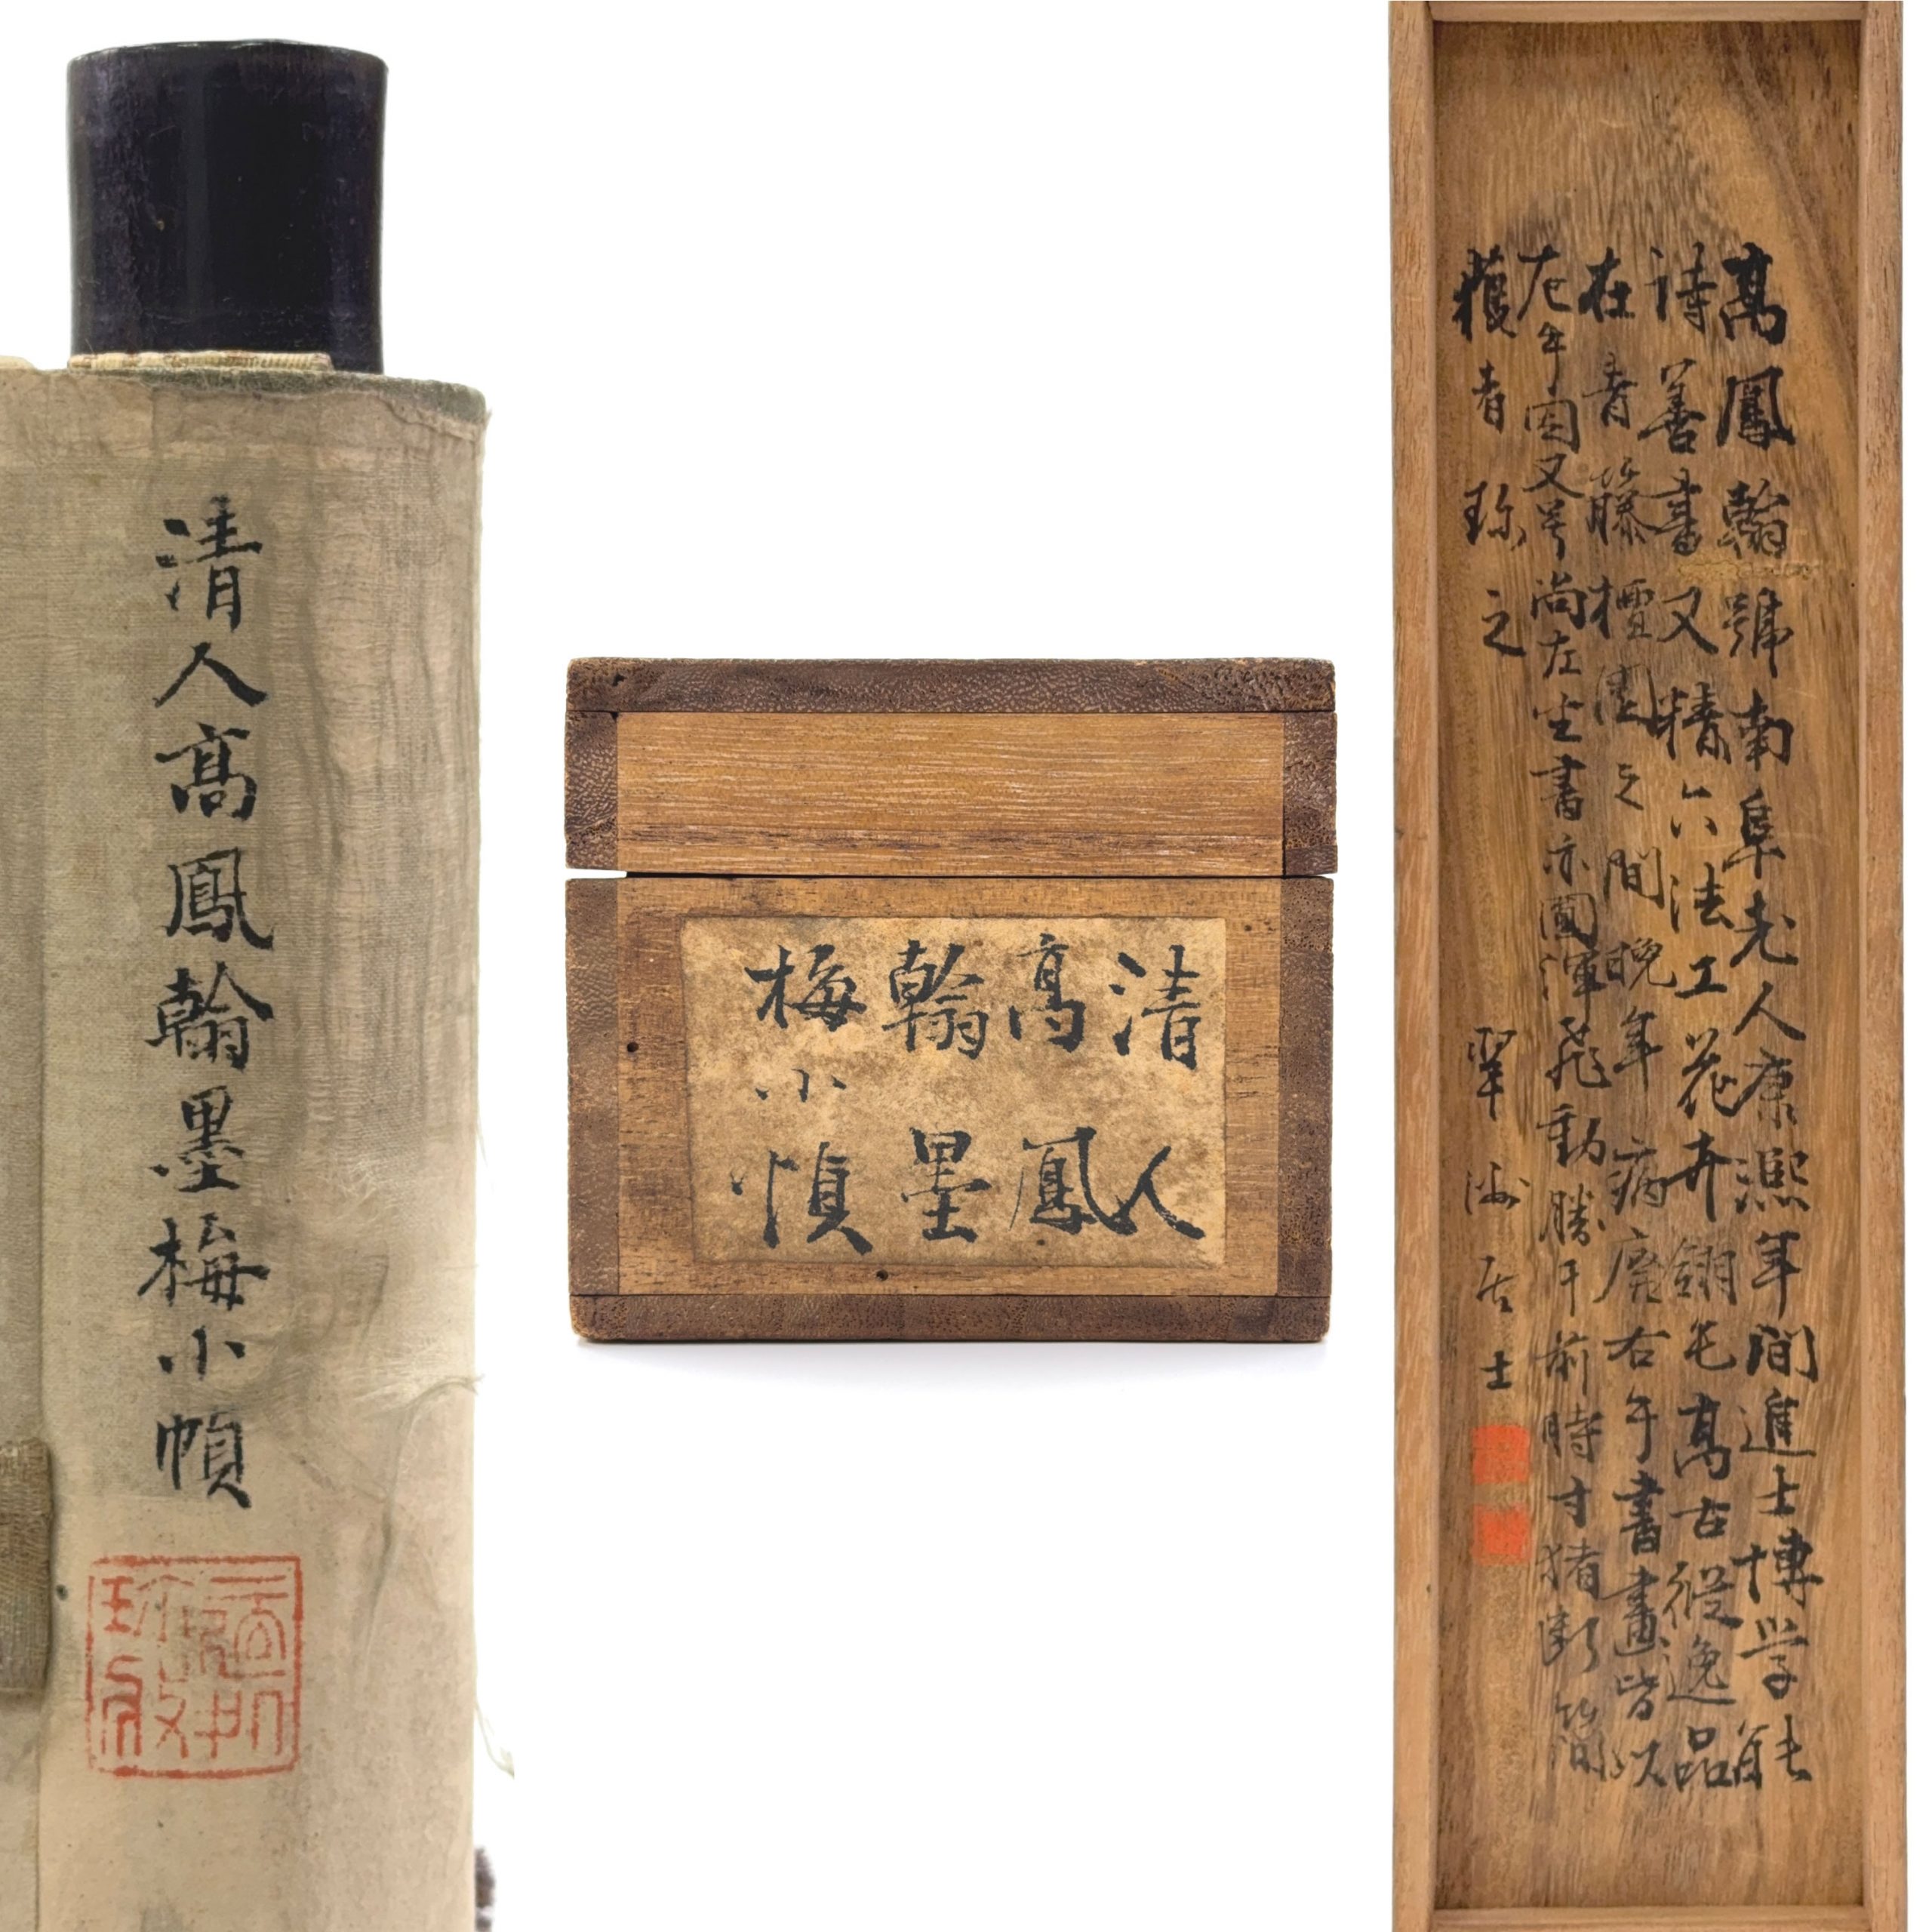 清人髙鳳翰墨梅小幀
清人
髙鳳
翰墨
梅小幀
髙鳳翰號南阜老人康熙年間進士博学能
詩善書又精六法工花卉翎毛髙古縱逸品
在青籐檀園之間晚年病廢右手書畫皆以
左手因又号尚左生書亦圓渾飛動勝于前時寸楮断簡
獲者珍之
居士